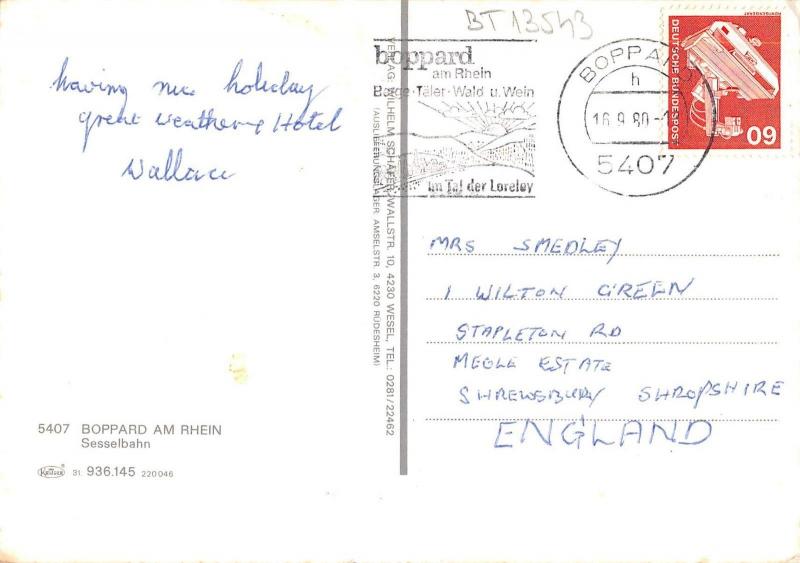 having nice holiday
great weather & Hotel
Wallace
5407 BOPPARD AM RHEIN
Sesselbahn
Krüger
31. 936.145 220046
VERLAG: WILHELM SCHÄFER, WALLSTR. 10, 4230 WESEL, TEL.: 0281/22462
(AUSLIEFERUNGSLAGER: AMSELSTR. 3, 6220 RÜDESHEIM)
BT13543
boppard
am Rhein
Berge·Täler·Wald u. Wein
im Tal der Loreley
BOPPARD
h
16.9.80-1
5407
DEUTSCHE BUNDESPOST
60
MRS SMEDLEY
1 WILTON GREEN
STAPLETON RD
MEOLE ESTATE
SHREWSBURY SHROPSHIRE
ENGLAND